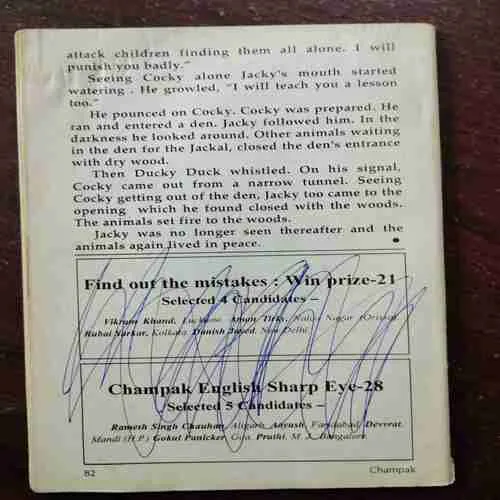 attack children finding them all alone. I will
punish you badly."
Seeing Cocky alone Jacky's mouth started
watering . He growled, "I will teach you a lesson
too."
He pounced on Cocky. Cocky was prepared. He
ran and entered a den. Jacky followed him. In the
darkness he looked around. Other animals waiting
in the den for the Jackal, closed the den's entrance
with dry wood.
Then Ducky Duck whistled. On his signal,
Cocky came out from a narrow tunnel. Seeing
Cocky getting out of the den, Jacky too came to the
opening which he found closed with the woods.
The animals set fire to the woods.
Jacky was no longer seen thereafter and the
animals again lived in peace.
Find out the mistakes : Win prize-21
Selected 4 Candidates –
Vikram Khand, Aman Tirky, Nagar (Orissa),
Rubai Sarkar, Kolkata, Danish Javed, New Delhi.
Champak English Sharp Eye-28
Selected 5 Candidates –
Ramesh Singh Chauhan, Aligarh, Aayush, Faridabad, Devvrat,
Mandi (H.P.) Gokul Panicker, Goa, Pruthi, M Bangalore.
82
Champak